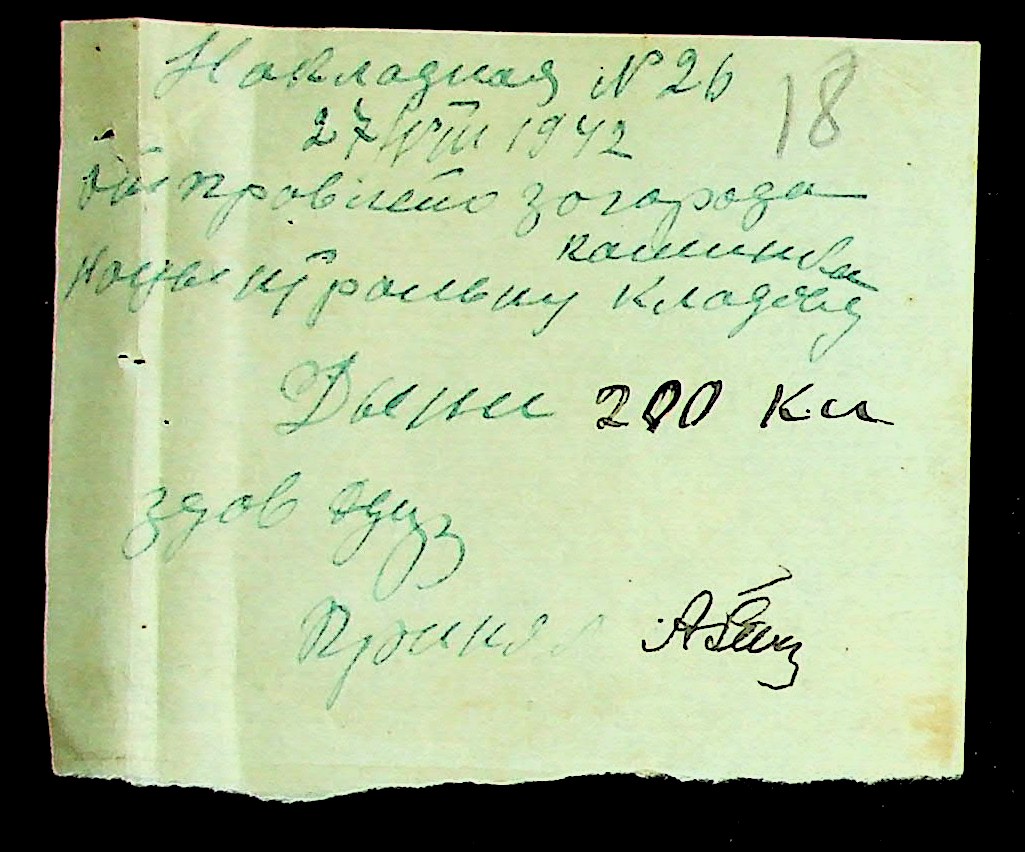 Накладная № 26
18
27/VIII 1942
Отправлено з огорода
камина
На центральну кладову
Дыни 200 Кил
здав
Приняв